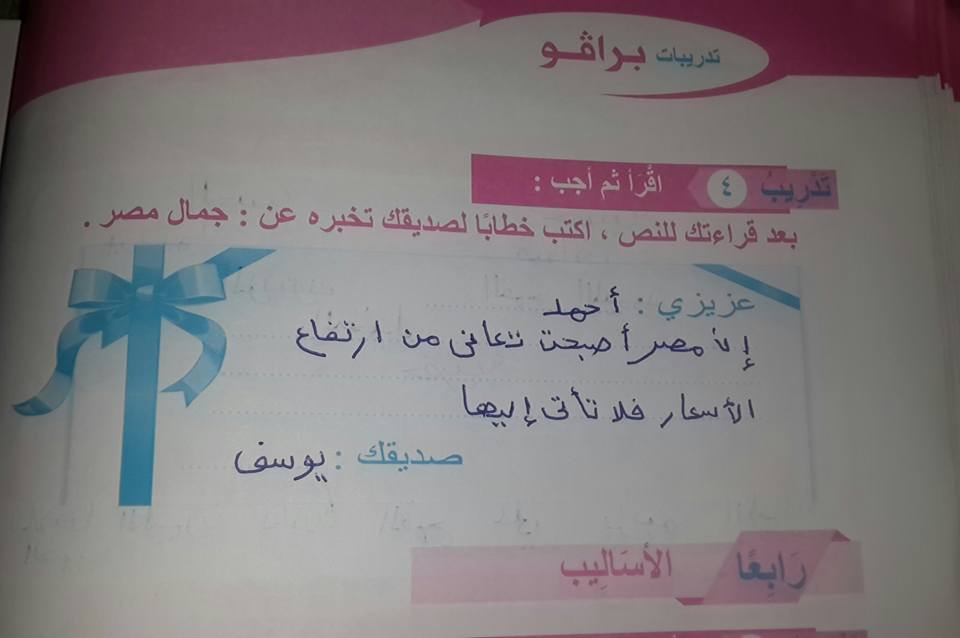 تدريبات براڤو
تَدْرِيبُ ٤ اقْرَأ ثم أجب :
بعد قراءتك للنص ، اكتب خطابًا لصديقك تخبره عن : جمال مصر .
عزيزي : أحمد
إن مصر أصبحت تعانى من ارتفاع
الأسعار فلا تأتى إليها
صديقك : يوسف
رَابِعًا الأسَالِيب